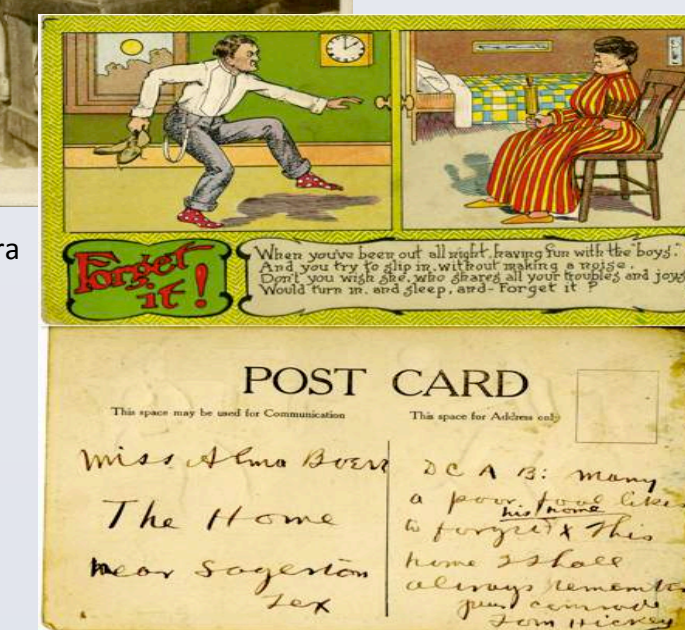 ra
Forget
it!
When you've been out all night, having fun with the "boys."
And you try to slip in, without making a noise.
Don't you wish she, who shares all your troubles and joys
Would turn in, and sleep, and - Forget it?
POST CARD
This space may be used for Communication
This space for Address only
Miss Alma Boerr
The Home
near Sagerton
Tex
D C A B: Many
a poor fool likes
his home
to forget x This
home I shall
always remember
your comrade
Tom Hickey